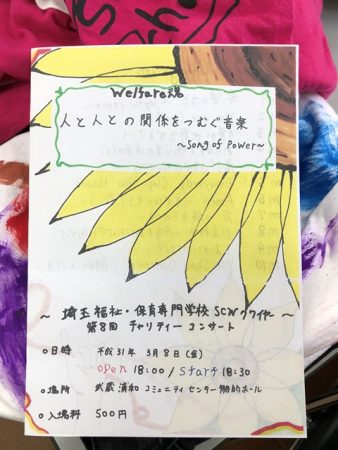 Welfare魂
人と人との関係をつむぐ音楽
~Song of Power~
~ 埼玉福祉・保育専門学校 SCWクワイヤー ~
第8回 チャリティーコンサート
○日時 平成31年 3月8日(金)
open 18:00 / start 18:30
○場所 武蔵浦和コミュニティセンター多目的ホール
○入場料 500円